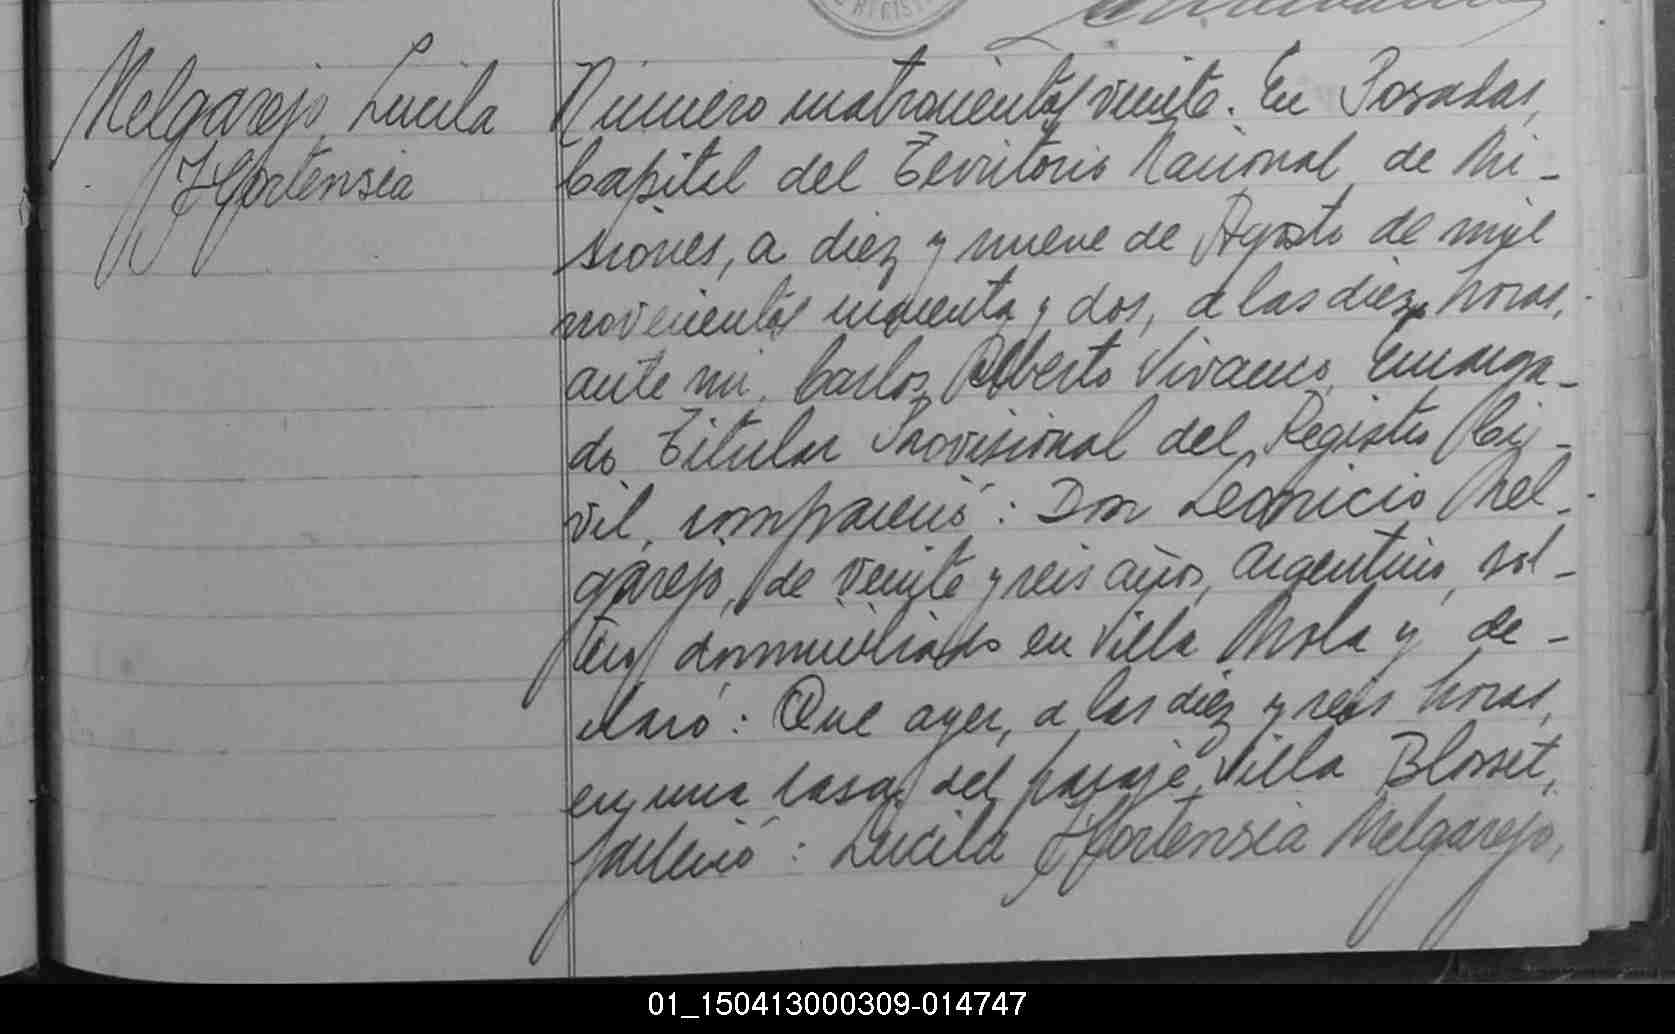 Melgarejo, Lucila
Hortensia
Número cuatrocientos veinte. En Posadas,
Capital del Territorio Nacional de Mi-
siones, a diez y nueve de Agosto de mil
novecientos cincuenta y dos, a las diez horas,
ante mi, Carlos Alberto Vivanco, Encarga-
do Titular Provisional del Registro Ci-
vil, compareció: Don Leonicio Mel-
garejo, de veinte y seis años, argentino, sol-
tero, domiciliado en Villa Mola y de-
claró: Que ayer, a las diez y seis horas,
en una casa del paraje Villa Blosset,
falleció: Lucila Hortensia Melgarejo,
01_150413000309-014747